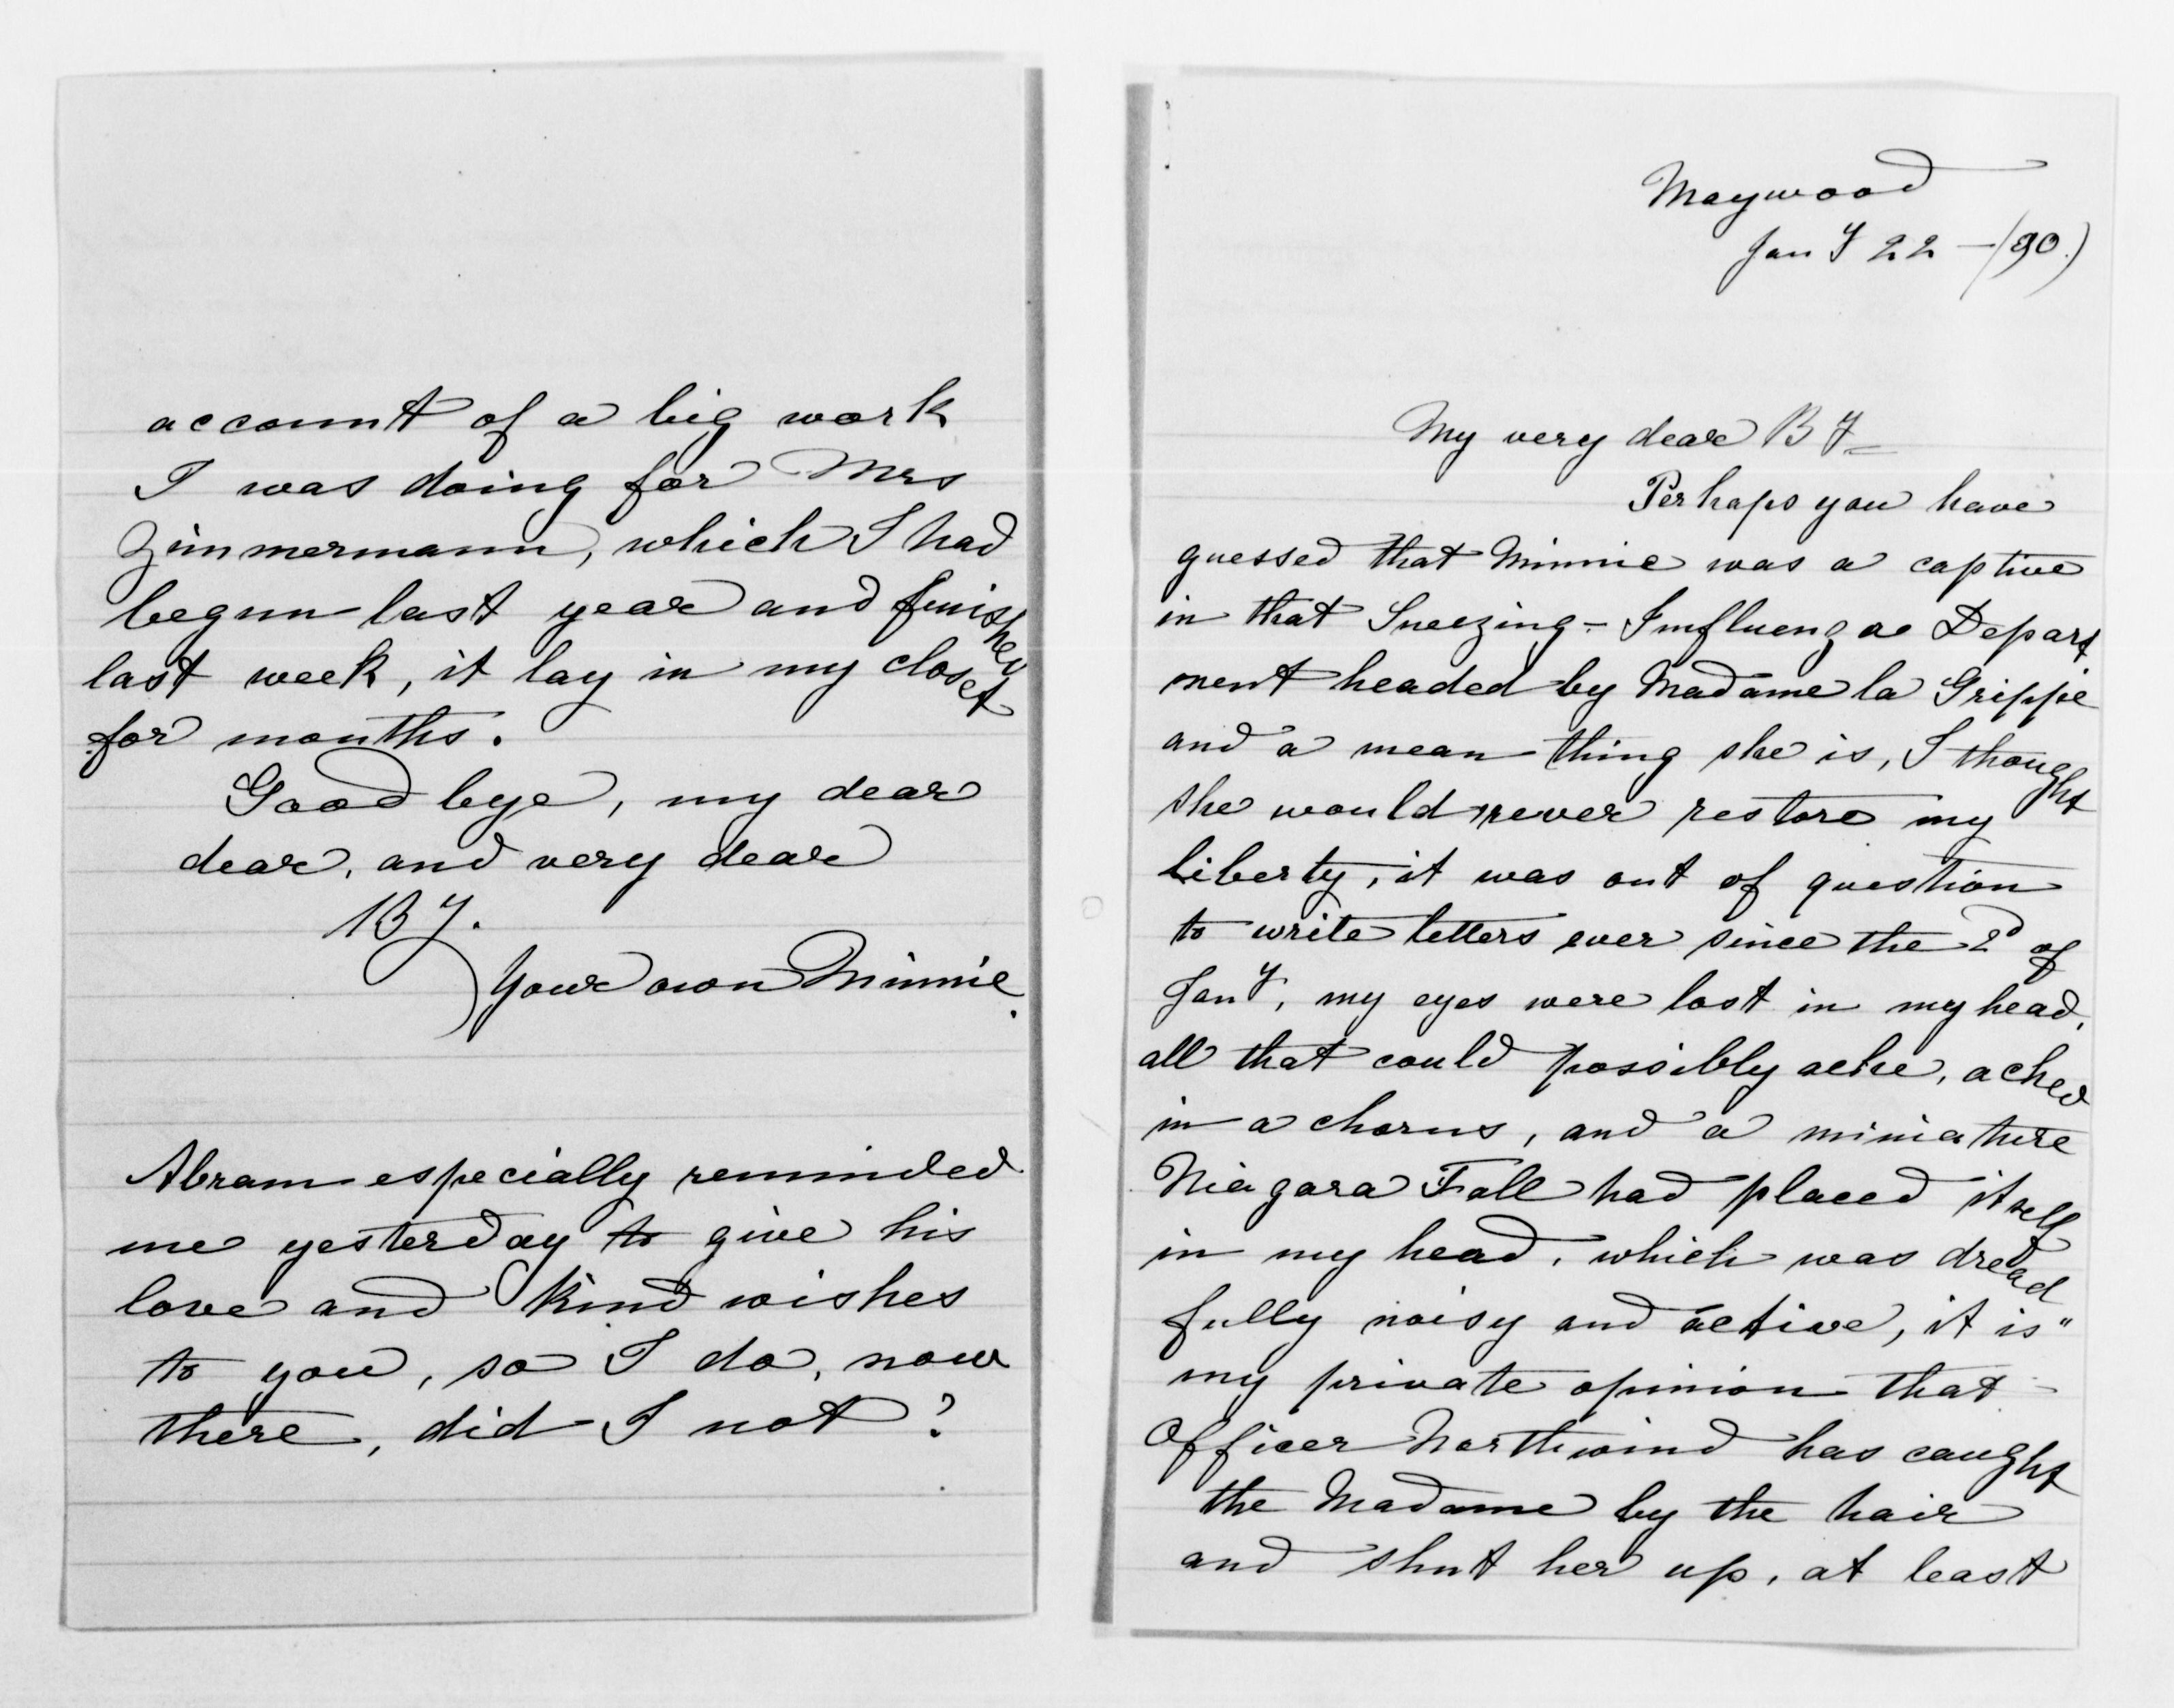 account of a big work
I was doing for Mrs
Zimmermann, which I had
begun last year and finished
last week, it lay in my closet
for months.
Good bye, my dear
dear, and very dear
B J.
Your own Minnie.
Abram especially reminded
me yesterday to give his
love and kind wishes
to you, so I do, now
there, did I not?
Maywood
Jany 22 - (90.)
My very dear B J
Perhaps you have
guessed that Minnie was a captive
in that Sneezing - Imfluenzae Depart
ment headed by Madame la Grippe
and a mean thing she is, I thought
she would never restore my
liberty, it was out of question
to write letters ever since the 2d of
Jany, my eyes were lost in my head,
all that could possibly ache, ached
in a chorus, and a miniature
Niagara Fall had placed itself
in my head, which was dread
fully noisy and active, it is"
my private opinion that -
Officer Northwind has caught
the Madame by the hair
and shut her up, at least